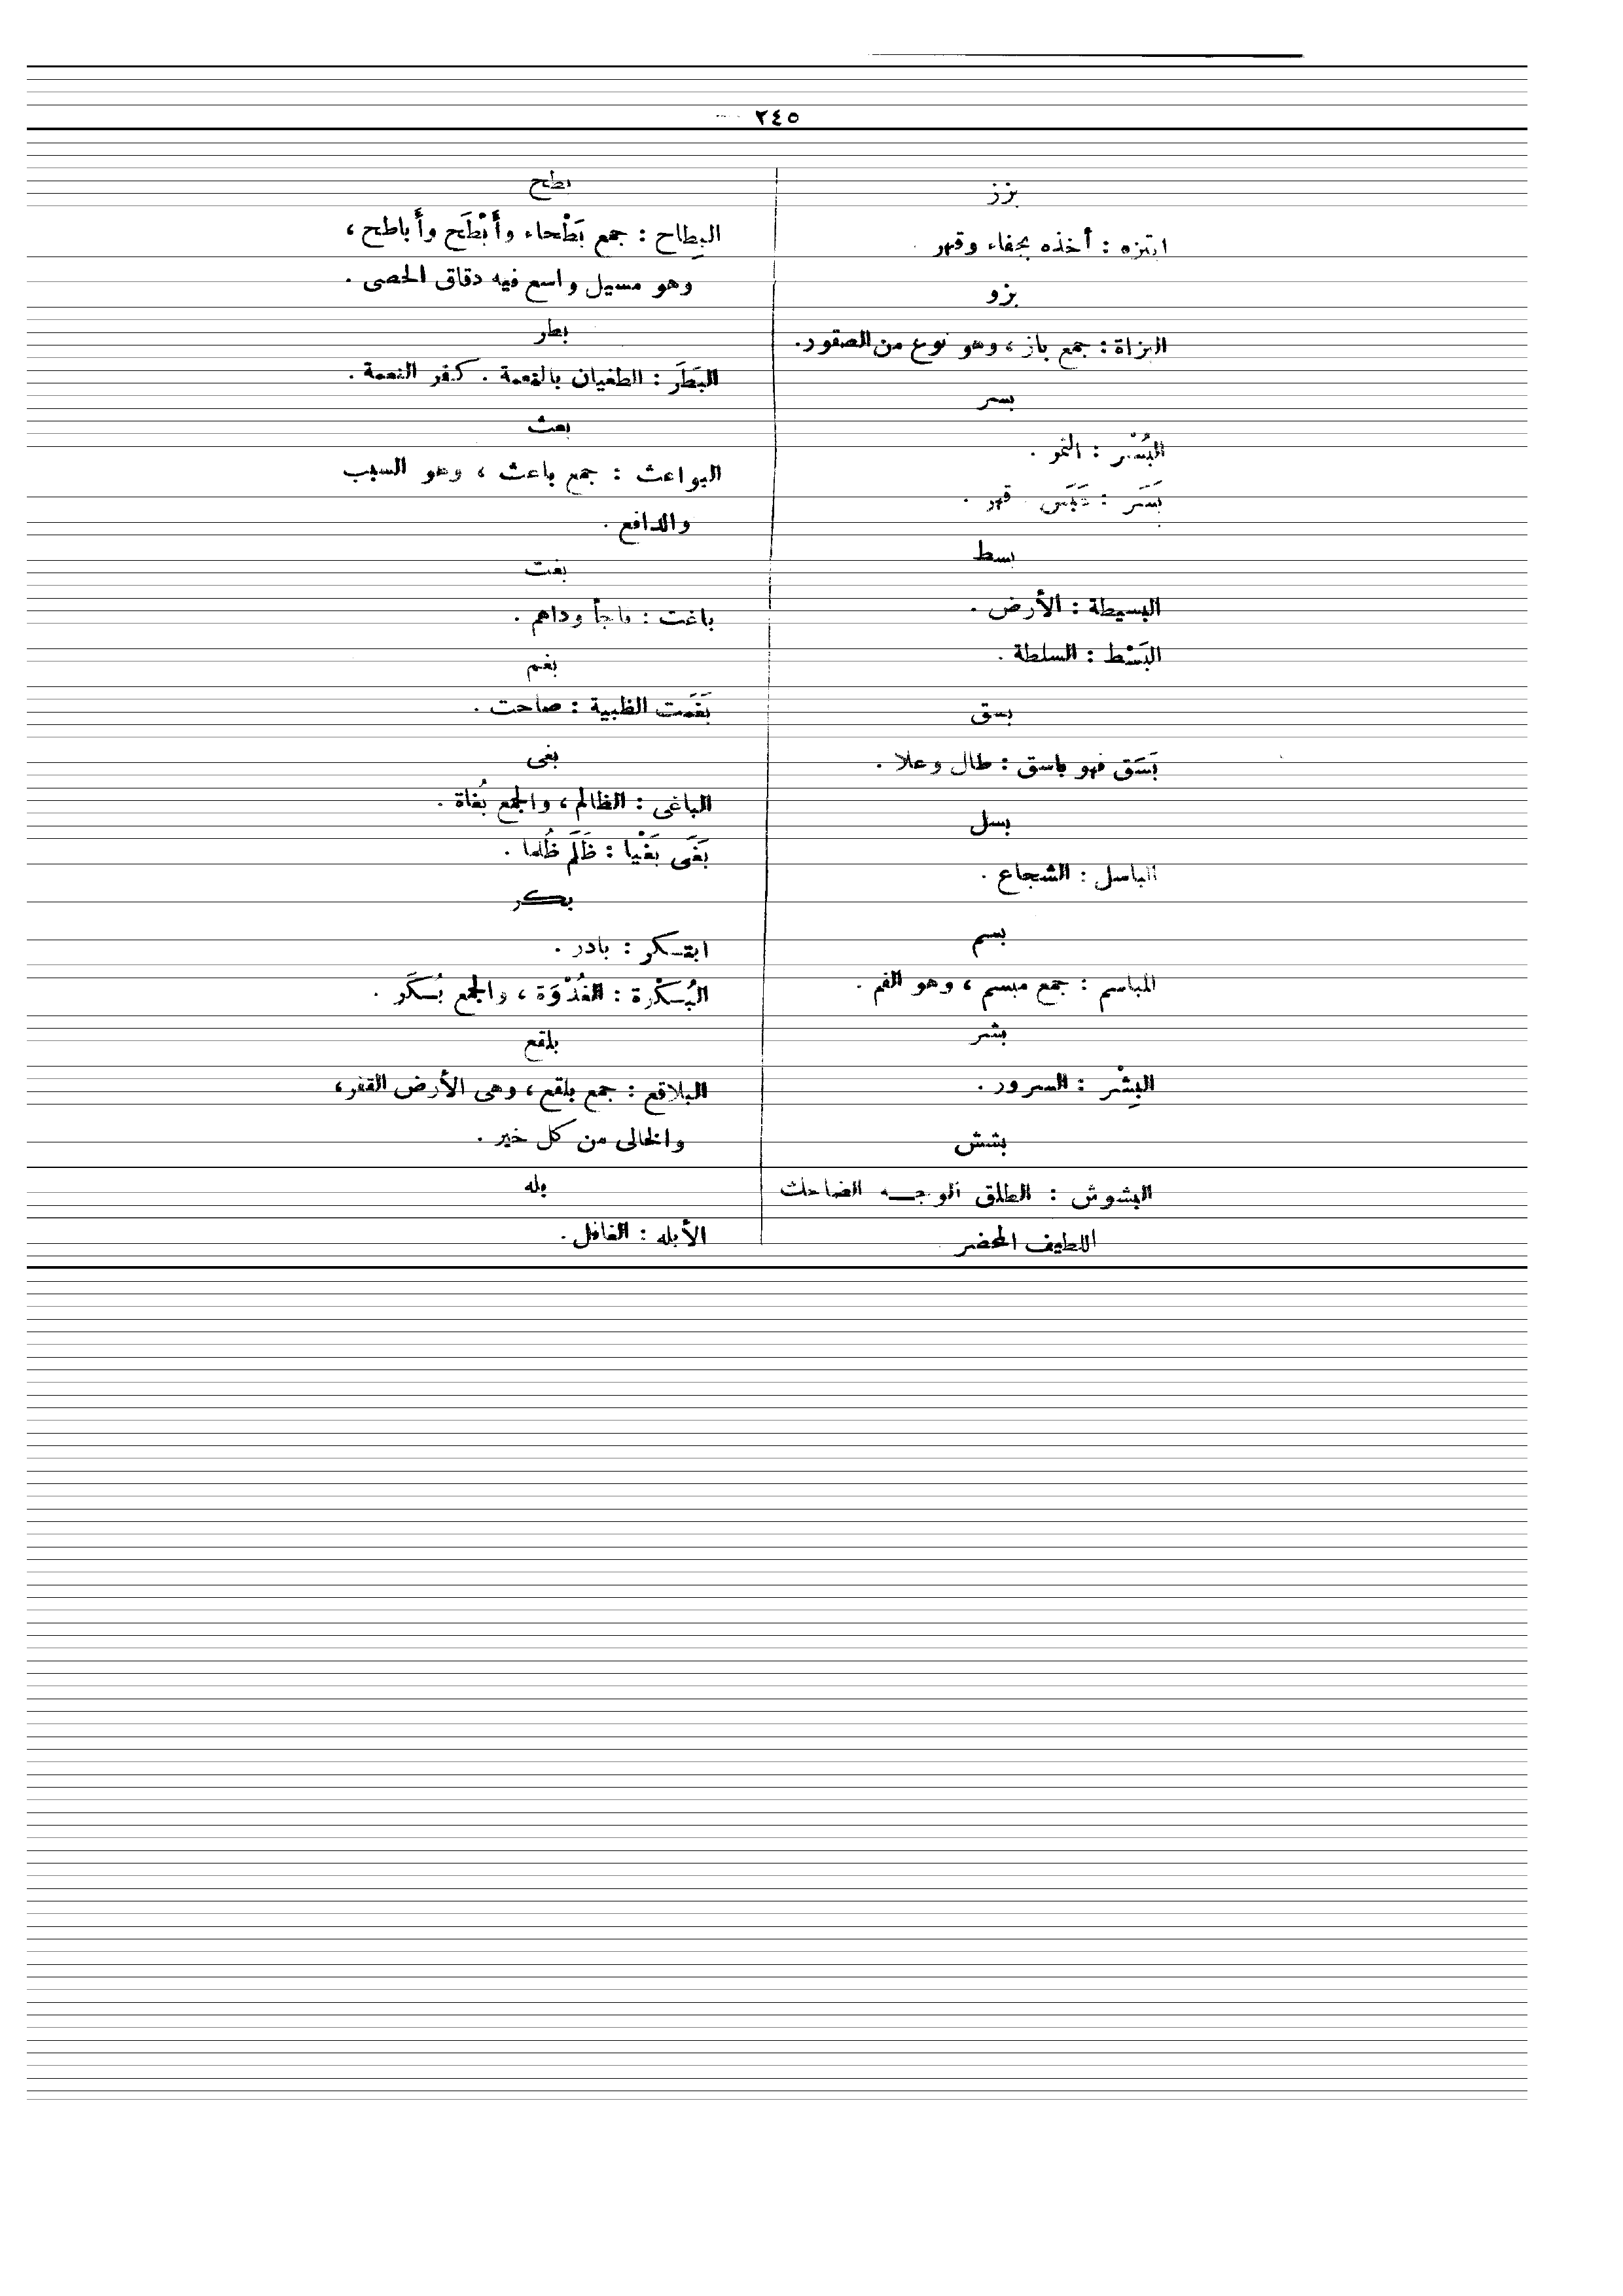 ٢٤٥
بزز
ابتزه : أخذه بجفاء وقهر
بزو
البزاة : جمع باز ، وهو نوع من الصقور.
بسر
البُسْر : التمر .
بَسَر : عَبَس قهر .
بسط
البسيطة : الأرض .
البَسْط : السلطة .
بسق
بَسَق فهو باسق : طال وعلا .
بسل
الباسل : الشجاع .
بسم
المباسم : جمع مبسم ، وهو الفم .
بشر
البِشْر : السرور .
بشش
البشوش : الطلق الوجه الضاحك
اللطيف المحضر
بطح
البِطاح : جمع بَطْحاء وأَبْطَح وأَباطح ،
وهو مسيل واسع فيه دقاق الحصى .
بطر
البَطَر : الطغيان بالنعمة . كفر النعمة .
بعث
البواعث : جمع باعث ، وهو السبب
والدافع .
بغت
باغت : فاجأ وداهم .
بغم
بَغَمَت الظبية : صاحت .
بغى
الباغى : الظالم ، والجمع بُغاة .
بَغَى بَغْيا : ظَلَم ظُلما .
بكر
ابتكر : بادر .
البُكْرة : الغُدْوَة ، والجمع بُكَر .
بلقع
البلاقع : جمع بلقع ، وهى الأرض القفر ،
والخالى من كل خير .
بله
الأبله : الغافل .